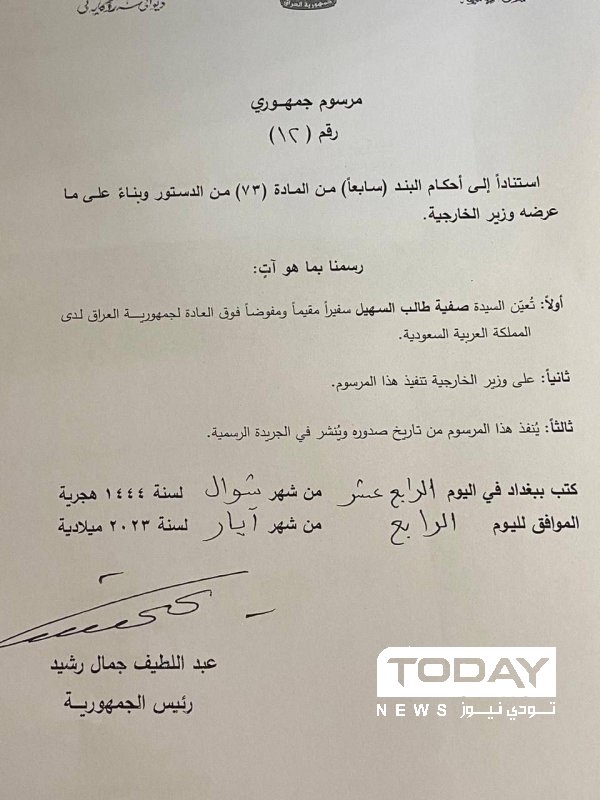 جمهورية العراق
مرسوم جمهوري
رقم (١٢)
استناداً إلى أحكام البند (سابعاً) من المادة (٧٣) من الدستور وبناءً على ما
عرضه وزير الخارجية.
رسمنا بما هو آتٍ:
أولاً: تُعيّن السيدة صفية طالب السهيل سفيراً مقيماً ومفوضاً فوق العادة لجمهورية العراق لدى
المملكة العربية السعودية.
ثانياً: على وزير الخارجية تنفيذ هذا المرسوم.
ثالثاً: يُنفذ هذا المرسوم من تاريخ صدوره ويُنشر في الجريدة الرسمية.
كتب ببغداد في اليوم الرابع عشر من شهر شوال لسنة ١٤٤٤ هجرية
الموافق لليوم الرابع من شهر آيار لسنة ٢٠٢٣ ميلادية
عبد اللطيف جمال رشيد
رئيس الجمهورية
TODAY
NEWS تودي نيوز